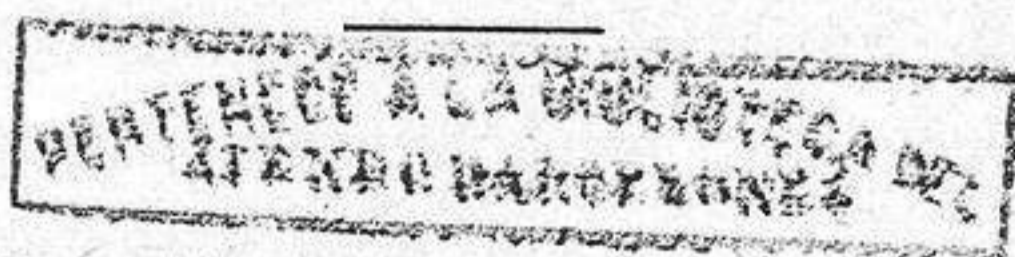 PERTENECE A LA BIBLIOTECA DEL
ATENEO BARCELONES